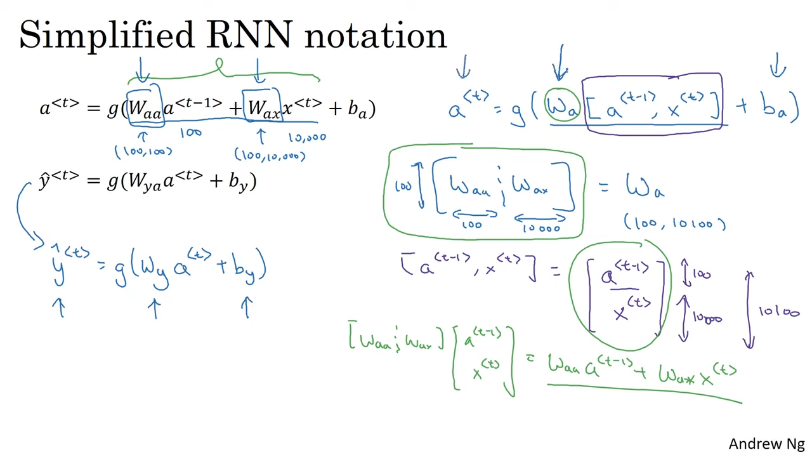 Simplified RNN notation
a<t> = g(Waa a<t−1> + Wax x<t> + ba)
100 10,000
(100,100) (100,10,000)
ŷ<t> = g(Wya a<t> + by)
ŷ<t> = g(Wy a<t> + by)
a<t> = g(Wa [a<t-1>, x<t>] + ba)
100 [Waa ; Wax] = Wa
100 10000 (100, 10100)
[a<t-1>, x<t>] = [a<t-1>
x<t>] 100
10,000 10100
[Waa ; Wax] [a<t-1>
x<t>] = Waa a<t-1> + Wax x<t>
Andrew Ng